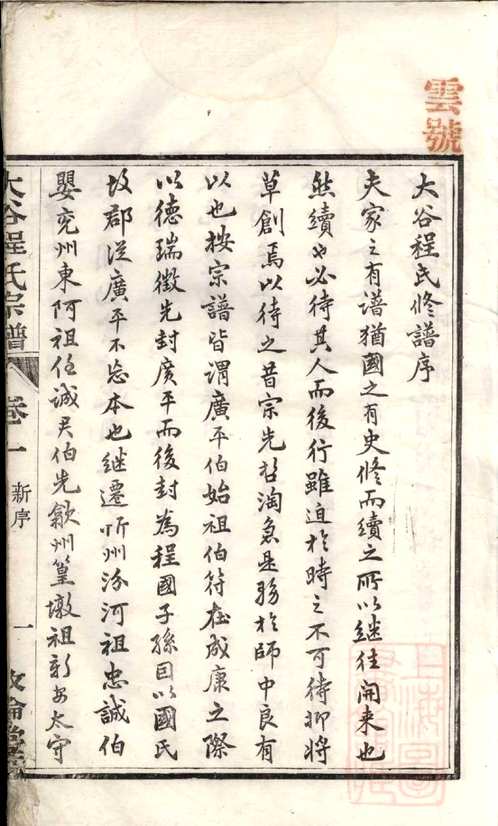 雲號
大谷程氏修譜序
夫家之有谱猶國之有史修而續之所以継往開来也
然續也必待其人而後行雖迫於時之不可待抑将
草創焉以待之昔宗先哲淘急是務於師中良有
以也按宗譜皆謂廣平伯始祖伯符在成康之際
以德瑞徵先封廣平而後封為程國子孫因以國氏
故郡從廣平不忘本也継遷忻州汾河祖忠誠伯
嬰兖州東阿祖任誠君伯先歙州篁墩祖新安太守
大谷程氏宗譜 卷一 新序 一 敦倫堂
上海圖